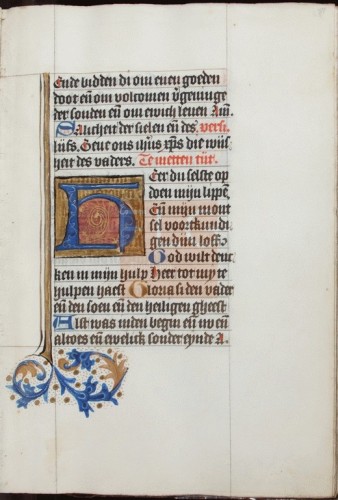 Ende bidden di om enen goeden
doot en̄ om volcomen v̄geuinge
der sonden en̄ om ewich leuen Am̄.
Salicheit der sielen en̄ des versi
lijfs. Geue ons ih̄us xp̄s die wijs
heit des vaders. Te metten tijt.
Heer du selste op
doen mijn lippen
En̄ mijn mont
sel voertkundi
gen dijn loff.
God wilt denc
ken in mijn hulp Heer tot my te
hulpen haest Gloria si den vader
en̄ den soen en̄ den heiligen gheest
Alst was inden begin en̄ nv en̄
altoes en̄ ewelick sonder eynde A.